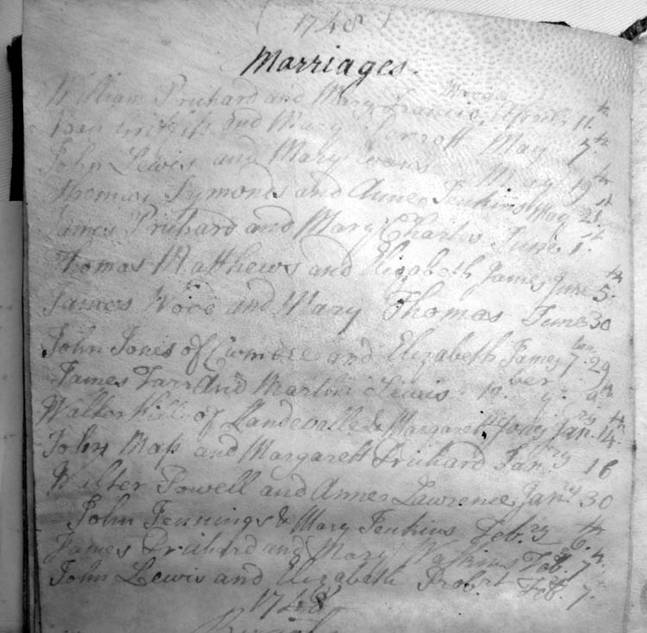 1748
Marriages.
William Prichard and Mary Francis, April 11th
and Mary May 7th
John Lewis and Mary Evans May 19th
Thomas Symonds and Anne Jenkins May 21st
James Prichard and Mary Charles June 1st
Thomas Matthews and Elizabeth James June 5th
James Wood and Mary Thomas June 30
John Jones of and Elizabeth James 7ber 29
James and Lewis 9th
Walter of & Margarett Jany 14th
John and Margarett Prichard Jany 16
Walter Powell and Anne Lawrence Jany 30
John Jennings & Mary Jenkins Febry 6th
James Prichard and Mary Watkins Feb. 7th
John Lewis and Elizabeth Probert Feb. 7.
1748